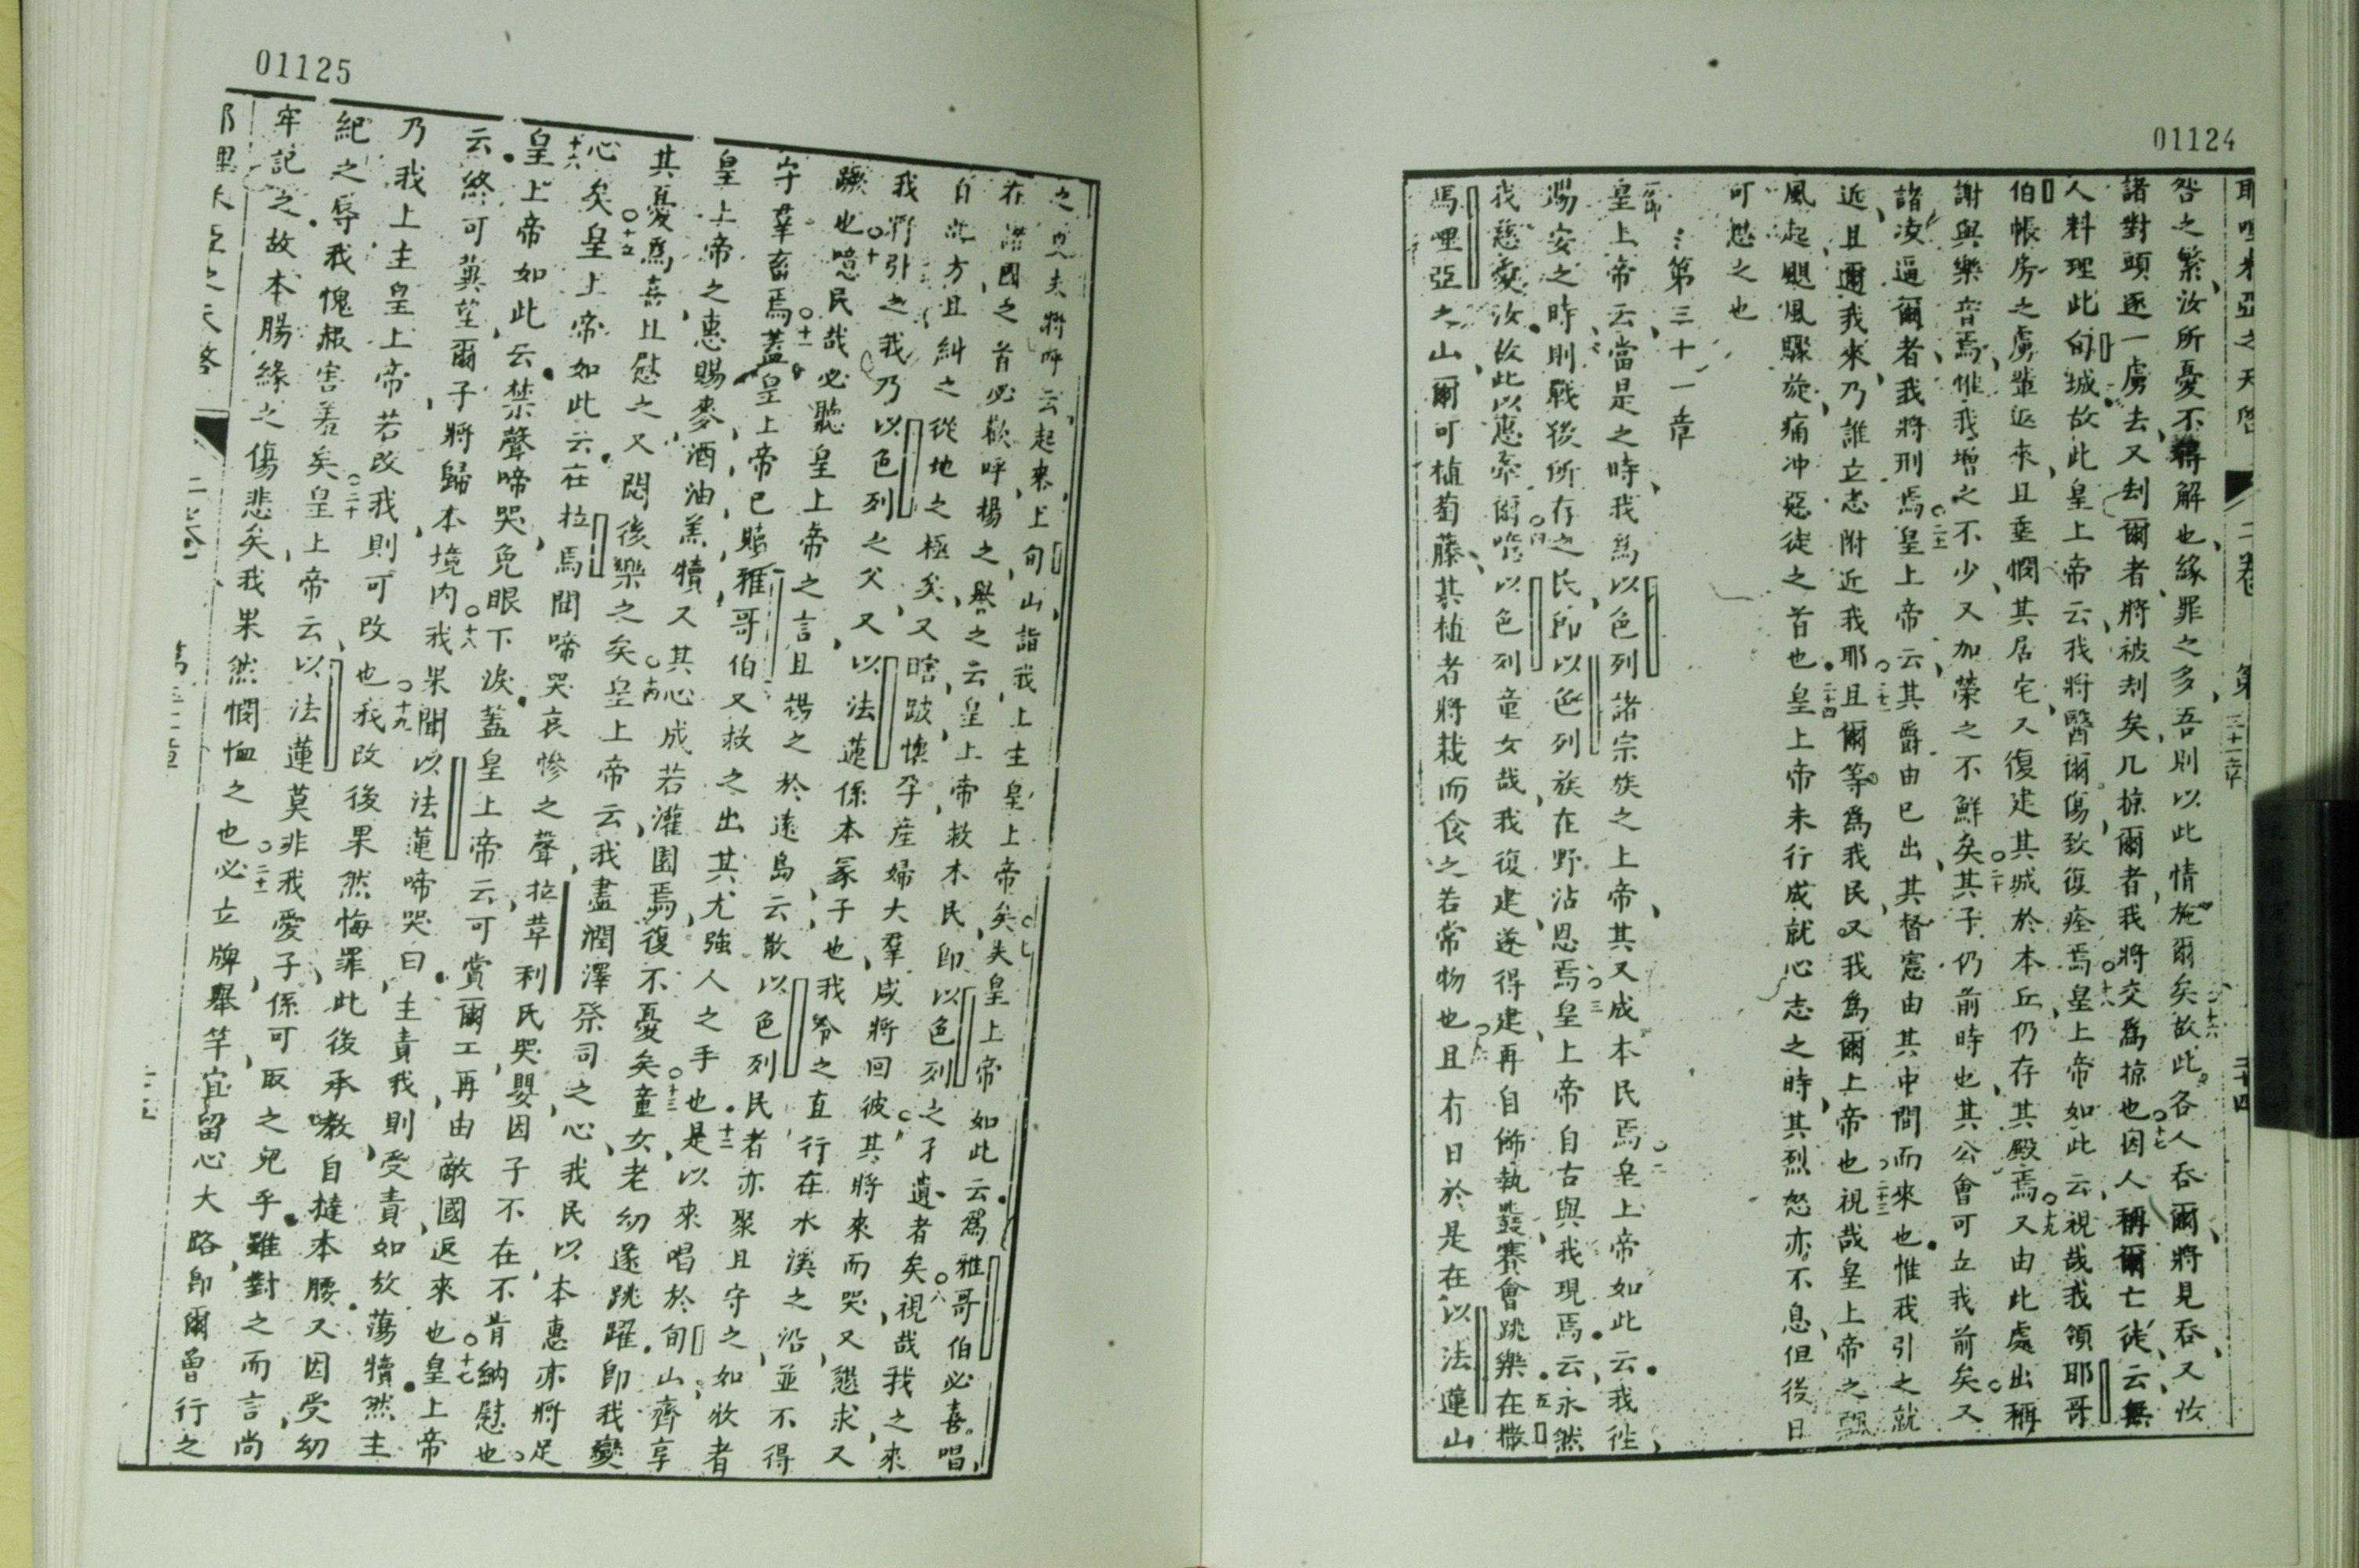 01124
耶哩米亞之天啓 二卷 第三十一章 三十四
咎之繁汝所憂不得解也緣罪之多吾則以此情施爾矣十六故此各人吞爾將見吞又汝
諸對頭逐一虜去又刦爾者將被刦矣凡掠爾者我將交爲掠也十七因人稱爾亡徒云無
人料理此旬城故此皇上帝云我將醫爾傷致復痊焉十八皇上帝如此云視哉我領耶哥
伯帳房之虜輩返來且垂憫其居宅又復建其城於本丘仍存其殿焉十九又由此處出稱
謝與樂音焉惟我增之不少又加榮之不鮮矣二十其子仍前時也其公會可立我前矣又
諸凌逼爾者我將刑焉二十一皇上帝云其爵由已出其督憲由其中間而來也惟我引之就
近且爾我來乃誰立志附近我耶二十二且爾等爲我民又我爲爾上帝也二十三視哉皇上帝之颶
風起颶風驟旋痛冲惡徒之首也二十四皇上帝未行成就心志之時其烈怒亦不息但後日
可懟之也
第三十一章
一節皇上帝云當是之時我爲以色列諸宗族之上帝其又成本民焉二皇上帝如此云我徃
湯安之時則戰後所存之民卽以色列族在野沾恩焉三皇上帝自古與我現焉云永然
我慈愛汝故此以惠牽爾四噫以色列童女哉我復建遂得建再自飾執鼗賽會跳樂五在撒
馬哩亞之山爾可植萄藤其植者將栽而食之若常物也六且有日於是在以法蓮山
01125
之 夫將呼云起來上旬山詣我上主皇上帝矣七夫皇上帝如此云爲雅哥伯必喜唱
在諸國之首必歡呼揚之舉之云皇上帝救本民卽以色列之孑遺者矣八視哉我之來
自北方且糾之從地之極矣又瞎跛懷孕產婦大羣咸將回彼九其將來而哭又懇求又
我將引之我乃以色列之父又以法蓮係本冢子也我令之直行在水溪之沿並不得
蹶也十噫民哉必聽皇上帝之言且揚之於遠島云散以色列民者亦聚且守之如牧者
守羣畜焉十一蓋皇上帝已贖雅哥伯又救之出其尤強人之手也十二是以來唱於旬山齊享
皇上帝之惠賜麥酒油羔犢又其心成若灌園焉復不憂矣十三童女老幼遂跳躍卽我變
其憂爲喜且慰之又悶後樂之矣十四皇上帝云我盡潤澤祭司之心我民以本惠亦將足
心矣十五皇上帝如此云在拉馬聞啼哭哀慘之聲拉葦利氏哭嬰因子不在不肯納慰也
十六皇上帝如此云禁聲啼哭免眼下淚蓋皇上帝云可賞爾工再由敵國返來也十七皇上帝
云終可冀望爾子將歸本境內十八我果聞以法蓮啼哭曰主責我則受責如放蕩犢然主
乃我上主皇上帝若改我則可改也十九我改後果然悔罪此後承教自撻本腰又因受幼
紀之辱我愧赧害羞矣二十皇上帝云以法蓮莫非我愛子係可取之兒乎雖對之而言尚
牢記之故本腸緣之傷悲矣我果然憫恤之也二十一必立牌舉竿宜留心大路卽爾曾行之
耶哩米亞之天啓 二卷 第三十一章 三十五